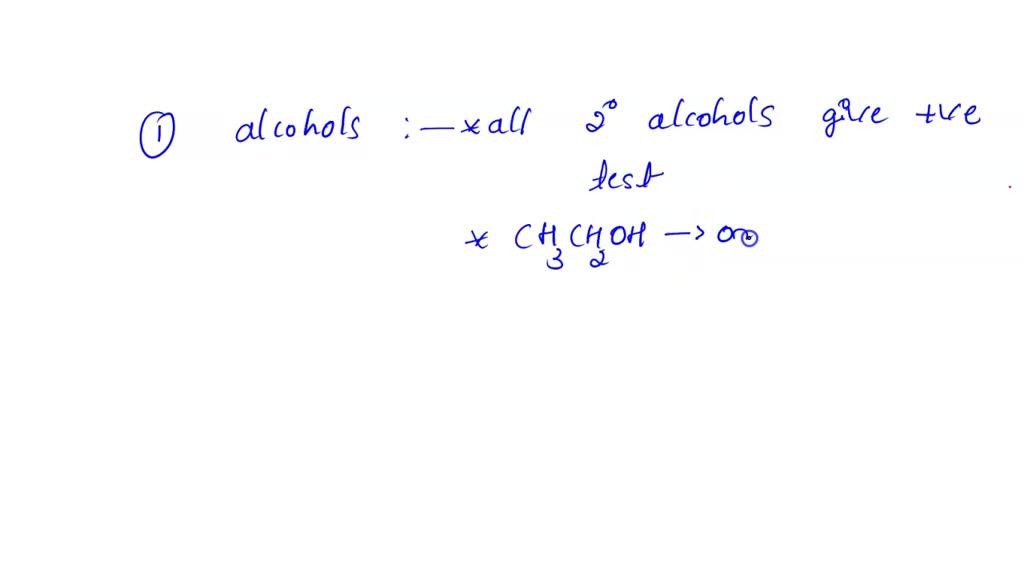 ① alcohols :— * all 2° alcohols give +ve
test
* CH3CH2OH →